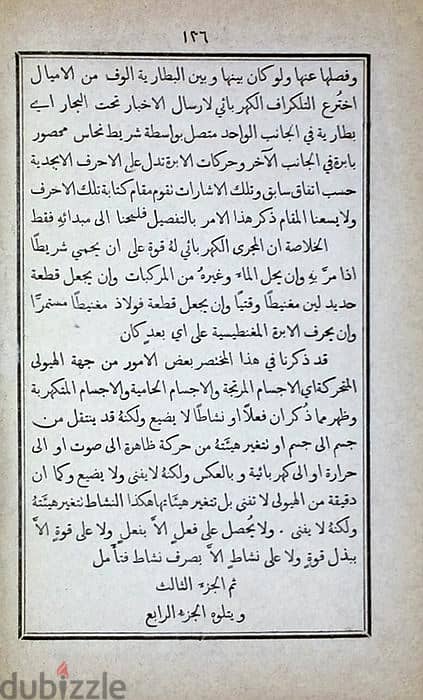 ١٢٦
وفصلها عنها ولو كان بينها وبين البطارية الوف من الاميال
اختُرع التلكراف الكهربائي لارسال الاخبار تحت البحار اي
بطارية في الجانب الواحد متصل بواسطة شريط نحاس محصور
بابرة في الجانب الآخر وحركات الابرة تدل على الاحرف الابجدية
حسب اتفاق سابق وتلك الاشارات تقوم مقام كتابة تلك الاحرف
ولا يسعنا المقام ذكر هذا الامر بالتفصيل فلمحنا الى مبدائهِ فقط
الخلاصة ان المجرى الكهربائي لهُ قوة على ان يحمي شريطًا
اذا مرَّ بهِ وان يحل الماء وغيرهُ من المركبات وان يجعل قطعة
حديد لين مغنيطًا وقتيًّا وان يجعل قطعة فولاذ مغنيطًا مستمرًّا
وان يحرف الابرة المغنطيسية على اي بعدٍ كان
قد ذكرنا في هذا المختصر بعض الامور من جهة الهيولى
المتحركة اي الاجسام المرتجة والاجسام الحامية والاجسام المتكهربة
وظهر مما ذُكر ان فعلًا او نشاطًا لا يضيع ولكنهُ قد ينتقل من
جسم الى جسم او تتغير هيئتهُ من حركة ظاهرة الى صوت او الى
حرارة او الى كهربائية وبالعكس ولكنهُ لا يفنى ولا يضيع وكما ان
دقيقة من الهيولى لا تفنى بل تتغير هيئاتها هكذا النشاط تتغير هيئتهُ
ولكنهُ لا يفنى . ولا يُحصل على فعلٍ الاَّ بفعل ولا على قوةٍ الاَّ
ببذل قوةٍ ولا على نشاطٍ الاَّ بصرف نشاط فتأمل
تم الجزء الثالث
ويتلوه الجزء الرابع
dubizzle